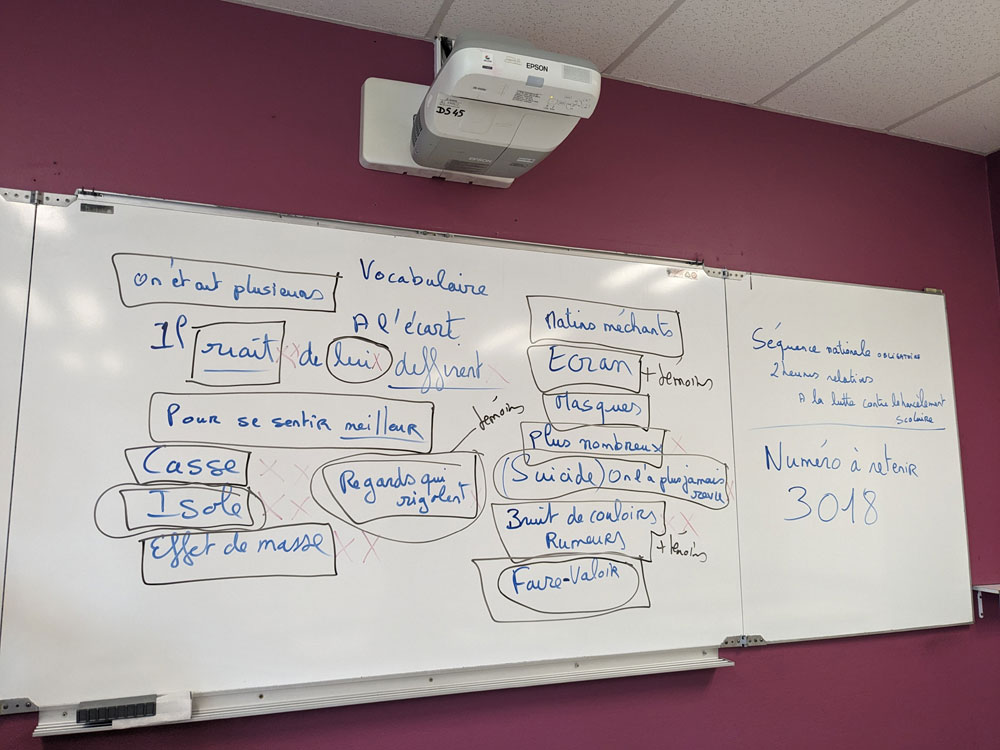 EPSON
DS 45
EPSON
Vocabulaire
On était plusieurs
A l'écart
Il riait xx de lui x différent
Pour se sentir meilleur
témoins
Casse x x
Isole x x
Effet de masse x x
Regards qui
rigolent
Matins méchants
Ecran + témoins
Masques
plus nombreux x
(Suicide) On l'a plus jamais
revu
Bruit de couloirs x x
Rumeurs + témoins
Faire-Valoir
Séquence nationale obligatoire
2 heures relatives
A la lutte contre le harcèlement
scolaire
Numéro à retenir
3018